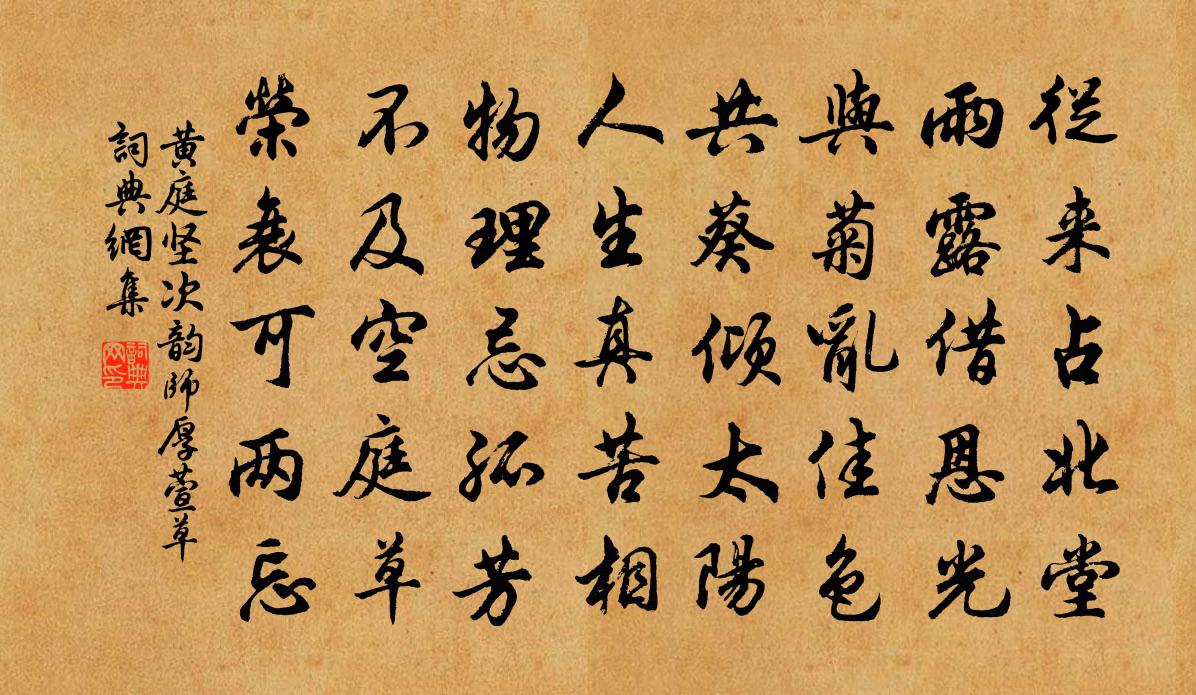 從来占北堂
雨露借恩光
與菊亂佳色
共葵傾太陽
人生真苦相
物理忌孤芳
不及空庭草
榮衰可两忘
黄庭坚次韵師厚萱草
詞典網集
詞典
网印